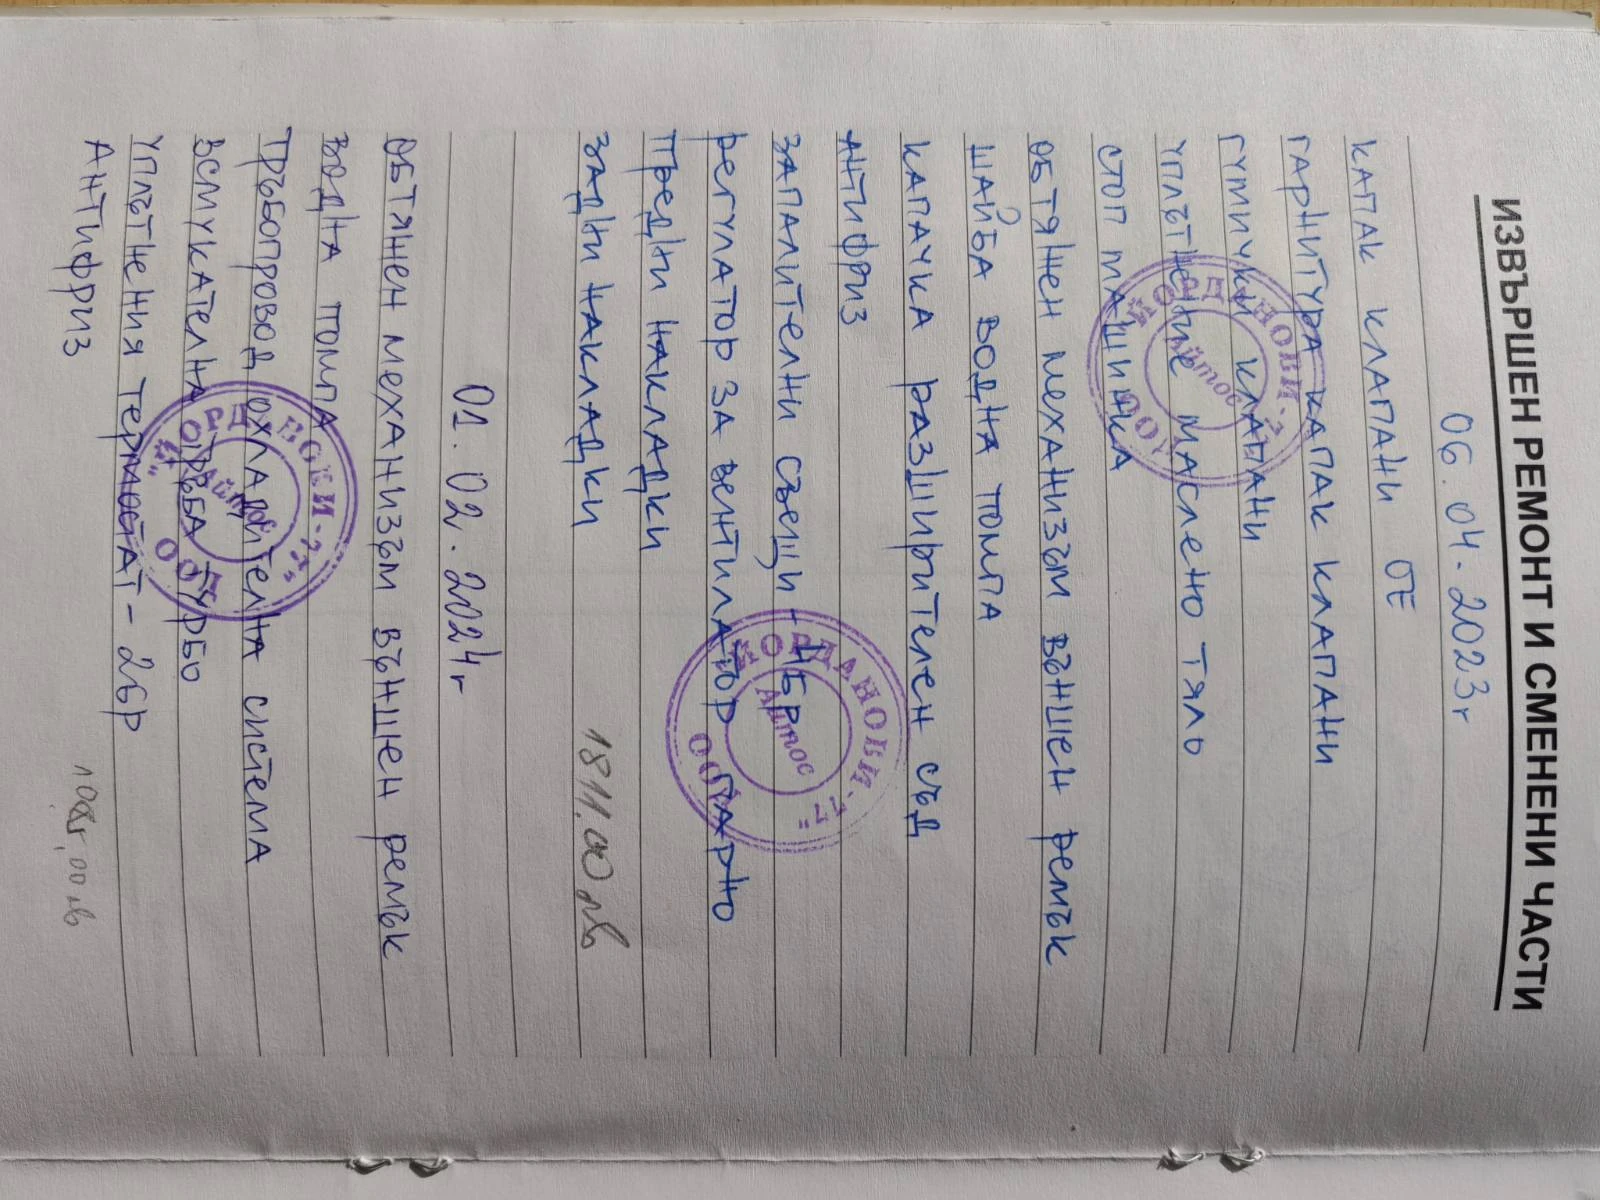 ИЗВЪРШЕН РЕМОНТ И СМЕНЕНИ ЧАСТИ
06.04.2023г
КАПАК КЛАПАНИ ОЕ
ГАРНИТУРА КАПАК КЛАПАНИ
ГУМИЧКИ КЛАПАНИ
УПЛЪТНЕНИЕ МАСЛЕНО ТЯЛО
СТОП МАШИНКА
ОБТЯЖЕН МЕХАНИЗЪМ ВЪНШЕН РЕМЪК
ШАЙБА ВОДНА ПОМПА
КАПАЧКА РАЗШИРИТЕЛЕН СЪД
АНТИФРИЗ
ЗАПАЛИТЕЛНИ СВЕЩИ - 4БР
РЕГУЛАТОР ЗА ВЕНТИЛАТОР ПАРНО
ПРЕДНИ НАКЛАДКИ
ЗАДНИ НАКЛАДКИ 1811,00 лв
01.02.2024г
ОБТЯЖЕН МЕХАНИЗЪМ ВЪНШЕН РЕМЪК
ВОДНА ПОМПА
ТРЪБОПРОВОД ОХЛАДИТЕЛНА СИСТЕМА
ВСМУКАТЕЛНА ТРЪБА ТУРБО
УПЛЪТНЕНИЯ ТЕРМОСТАТ - 2БР
АНТИФРИЗ
"ЙОРДАНОВИ-77" ООД
Айтос
"ЙОРДАНОВИ-77" ООД
Айтос
"ЙОРДАНОВИ-77" ООД
Айтос